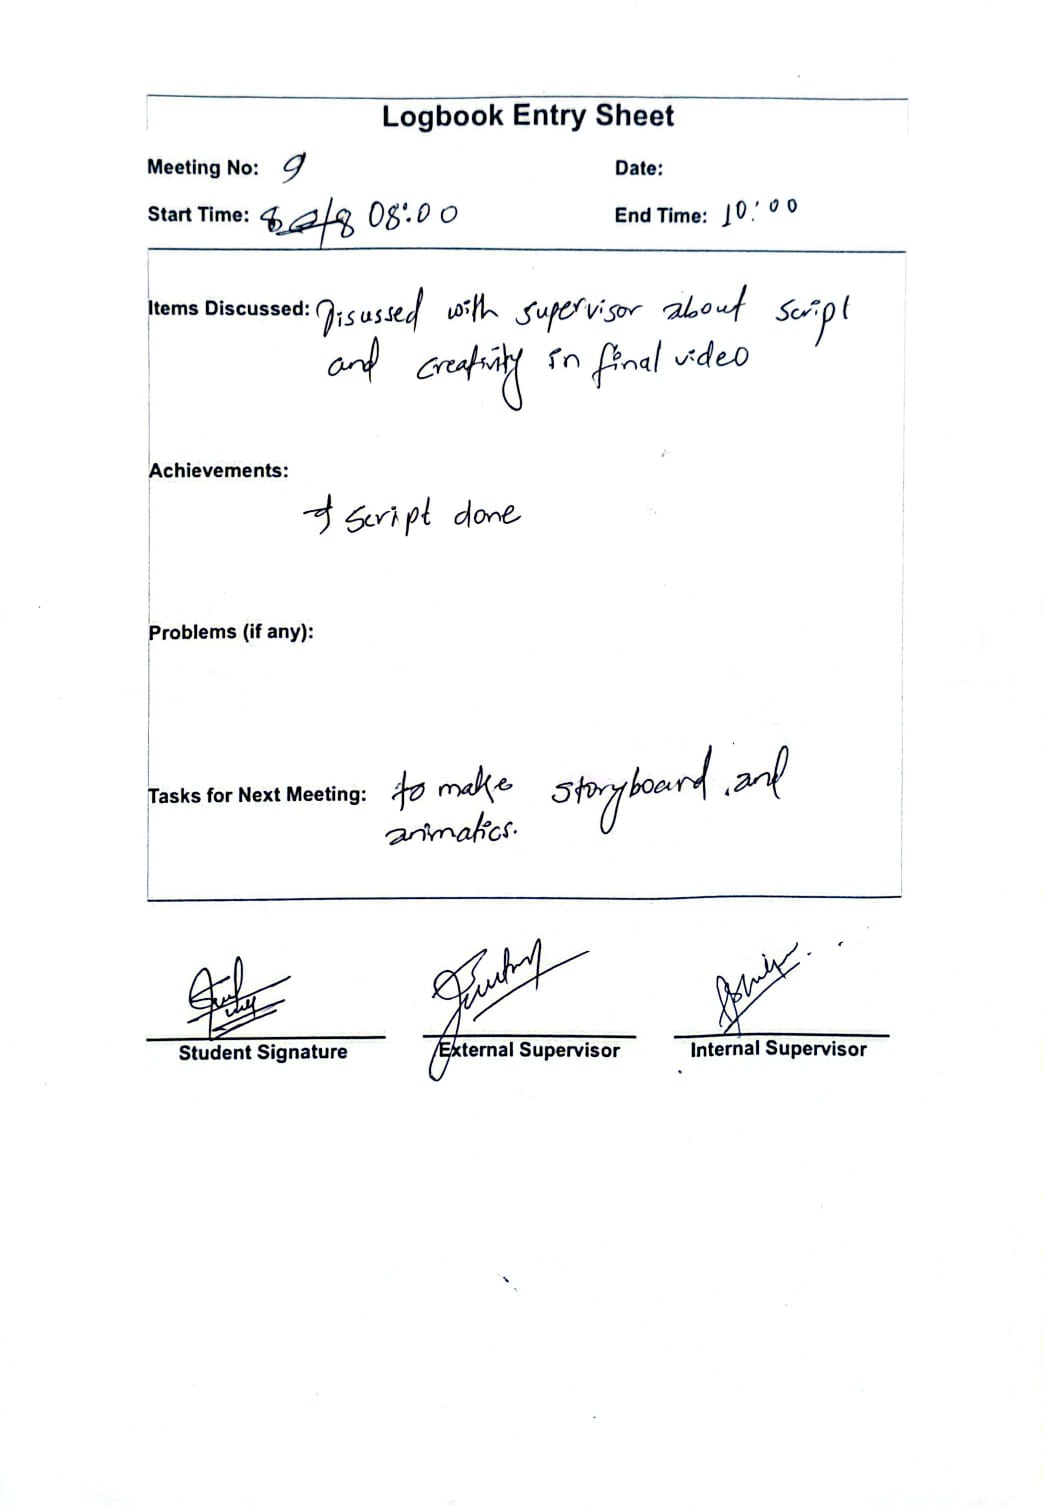 Logbook Entry Sheet
Meeting No: 9
Date:
Start Time: 08:00
End Time: 10:00
Items Discussed: Disussed with supervisor about script
and creativity in final video
Achievements:
→ Script done
Problems (if any):
Tasks for Next Meeting: to make storyboard, and
animatics.
Student Signature
External Supervisor
Internal Supervisor